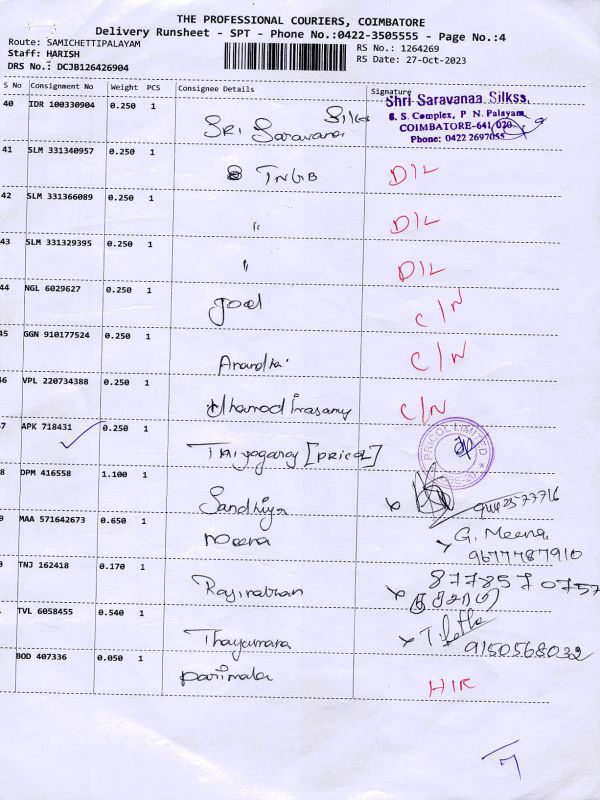 THE PROFESSIONAL COURIERS, COIMBATORE
Delivery Runsheet - SPT - Phone No.:0422-3505555 - Page No.:4
Route: SAMICHETTIPALAYAM
Staff: HARISH
DRS No.: DCJB126426904
RS No.: 1264269
RS Date: 27-Oct-2023
S No Consignment No Weight PCS Consignee Details Signature
40 IDR 100330904 0.250 1 SRI Saravana Silks
Shri Saravanaa Silkss,
S. S. Complex, P. N. Palayam,
COIMBATORE-641 020.
Phone: 0422 2697055
41 SLM 331340957 0.250 1 TNGB D/L
42 SLM 331366089 0.250 1 " D/L
43 SLM 331329395 0.250 1 " D/L
44 NGL 6029627 0.250 1 goel C/N
45 GGN 910177524 0.250 1 C/N
46 VPL 220734388 0.250 1 C/N
47 APK 718431 0.250 1 [PRICOL]
PRICOL LIMITED
8 DPM 416558 1.100 1 Sandhiya
9 MAA 571642673 0.650 1 Meena G. Meena
9677787910
0 TNJ 162418 0.170 1
TVL 6058455 0.540 1
9150568032
BOD 407336 0.050 1 Parimala